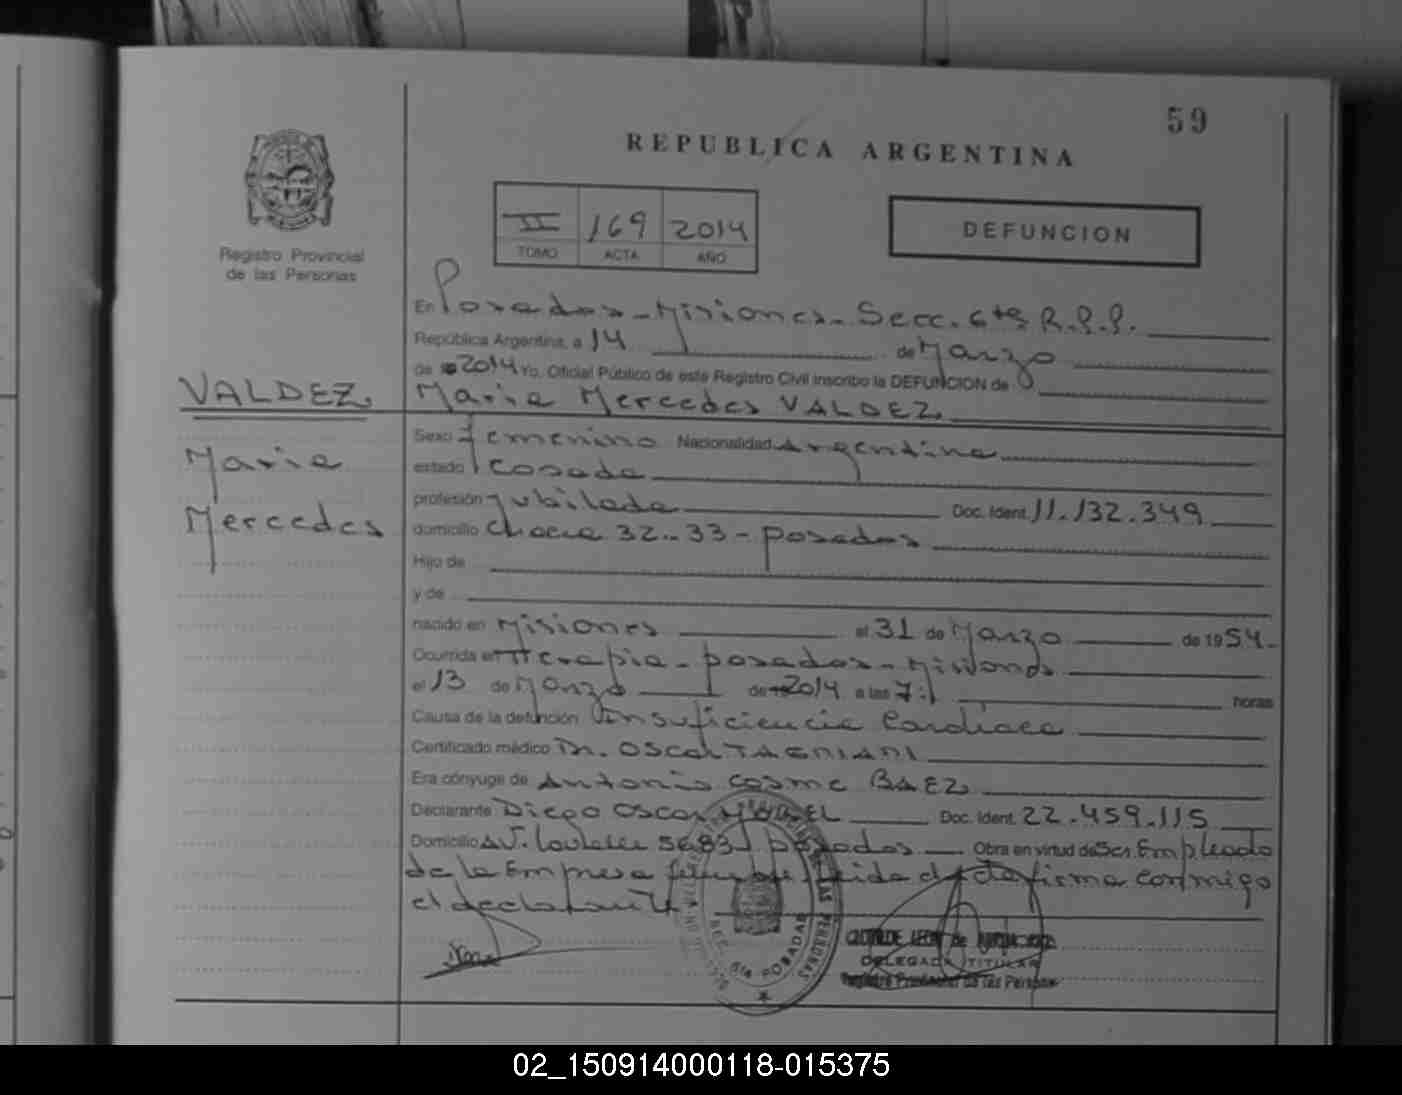 59
REPUBLICA ARGENTINA
II 169 2014
TOMO ACTA AÑO
DEFUNCION
Registro Provincial
de las Personas
En Posadas - Misiones - Secc. 6ta R.P.P.
República Argentina, a 14 de Marzo
de 2014 Yo. Oficial Público de este Registro Civil inscribo la DEFUNCION de
VALDEZ Maria Mercedes VALDEZ
Sexo Femenino Nacionalidad Argentina
Maria
estado Casada
profesión Jubilada Doc. Ident. 11.132.349
Mercedes
domicilio Chacra 32-33 - Posadas
Hijo de
y de
nacido en Misiones el 31 de Marzo de 1954.
Ocurrida en Terapia - Posadas - Misiones
el 13 de Marzo de 2014 a las 7: horas
Causa de la defunción Insuficiencia Cardiaca
Certificado médico Dr. Oscar
Era cónyuge de Antonio Cosme BAEZ
Declarante Diego Oscar Doc. Ident. 22.459.115
Domicilio AV. 5683 Posadas Obra en virtud de Ser Empleado
de la Empresa leida el acta firma conmigo
el declarante
SEC. 6ta POSADAS
DELEGADA TITULAR
Registro Provincial de las Personas
02_150914000118-015375